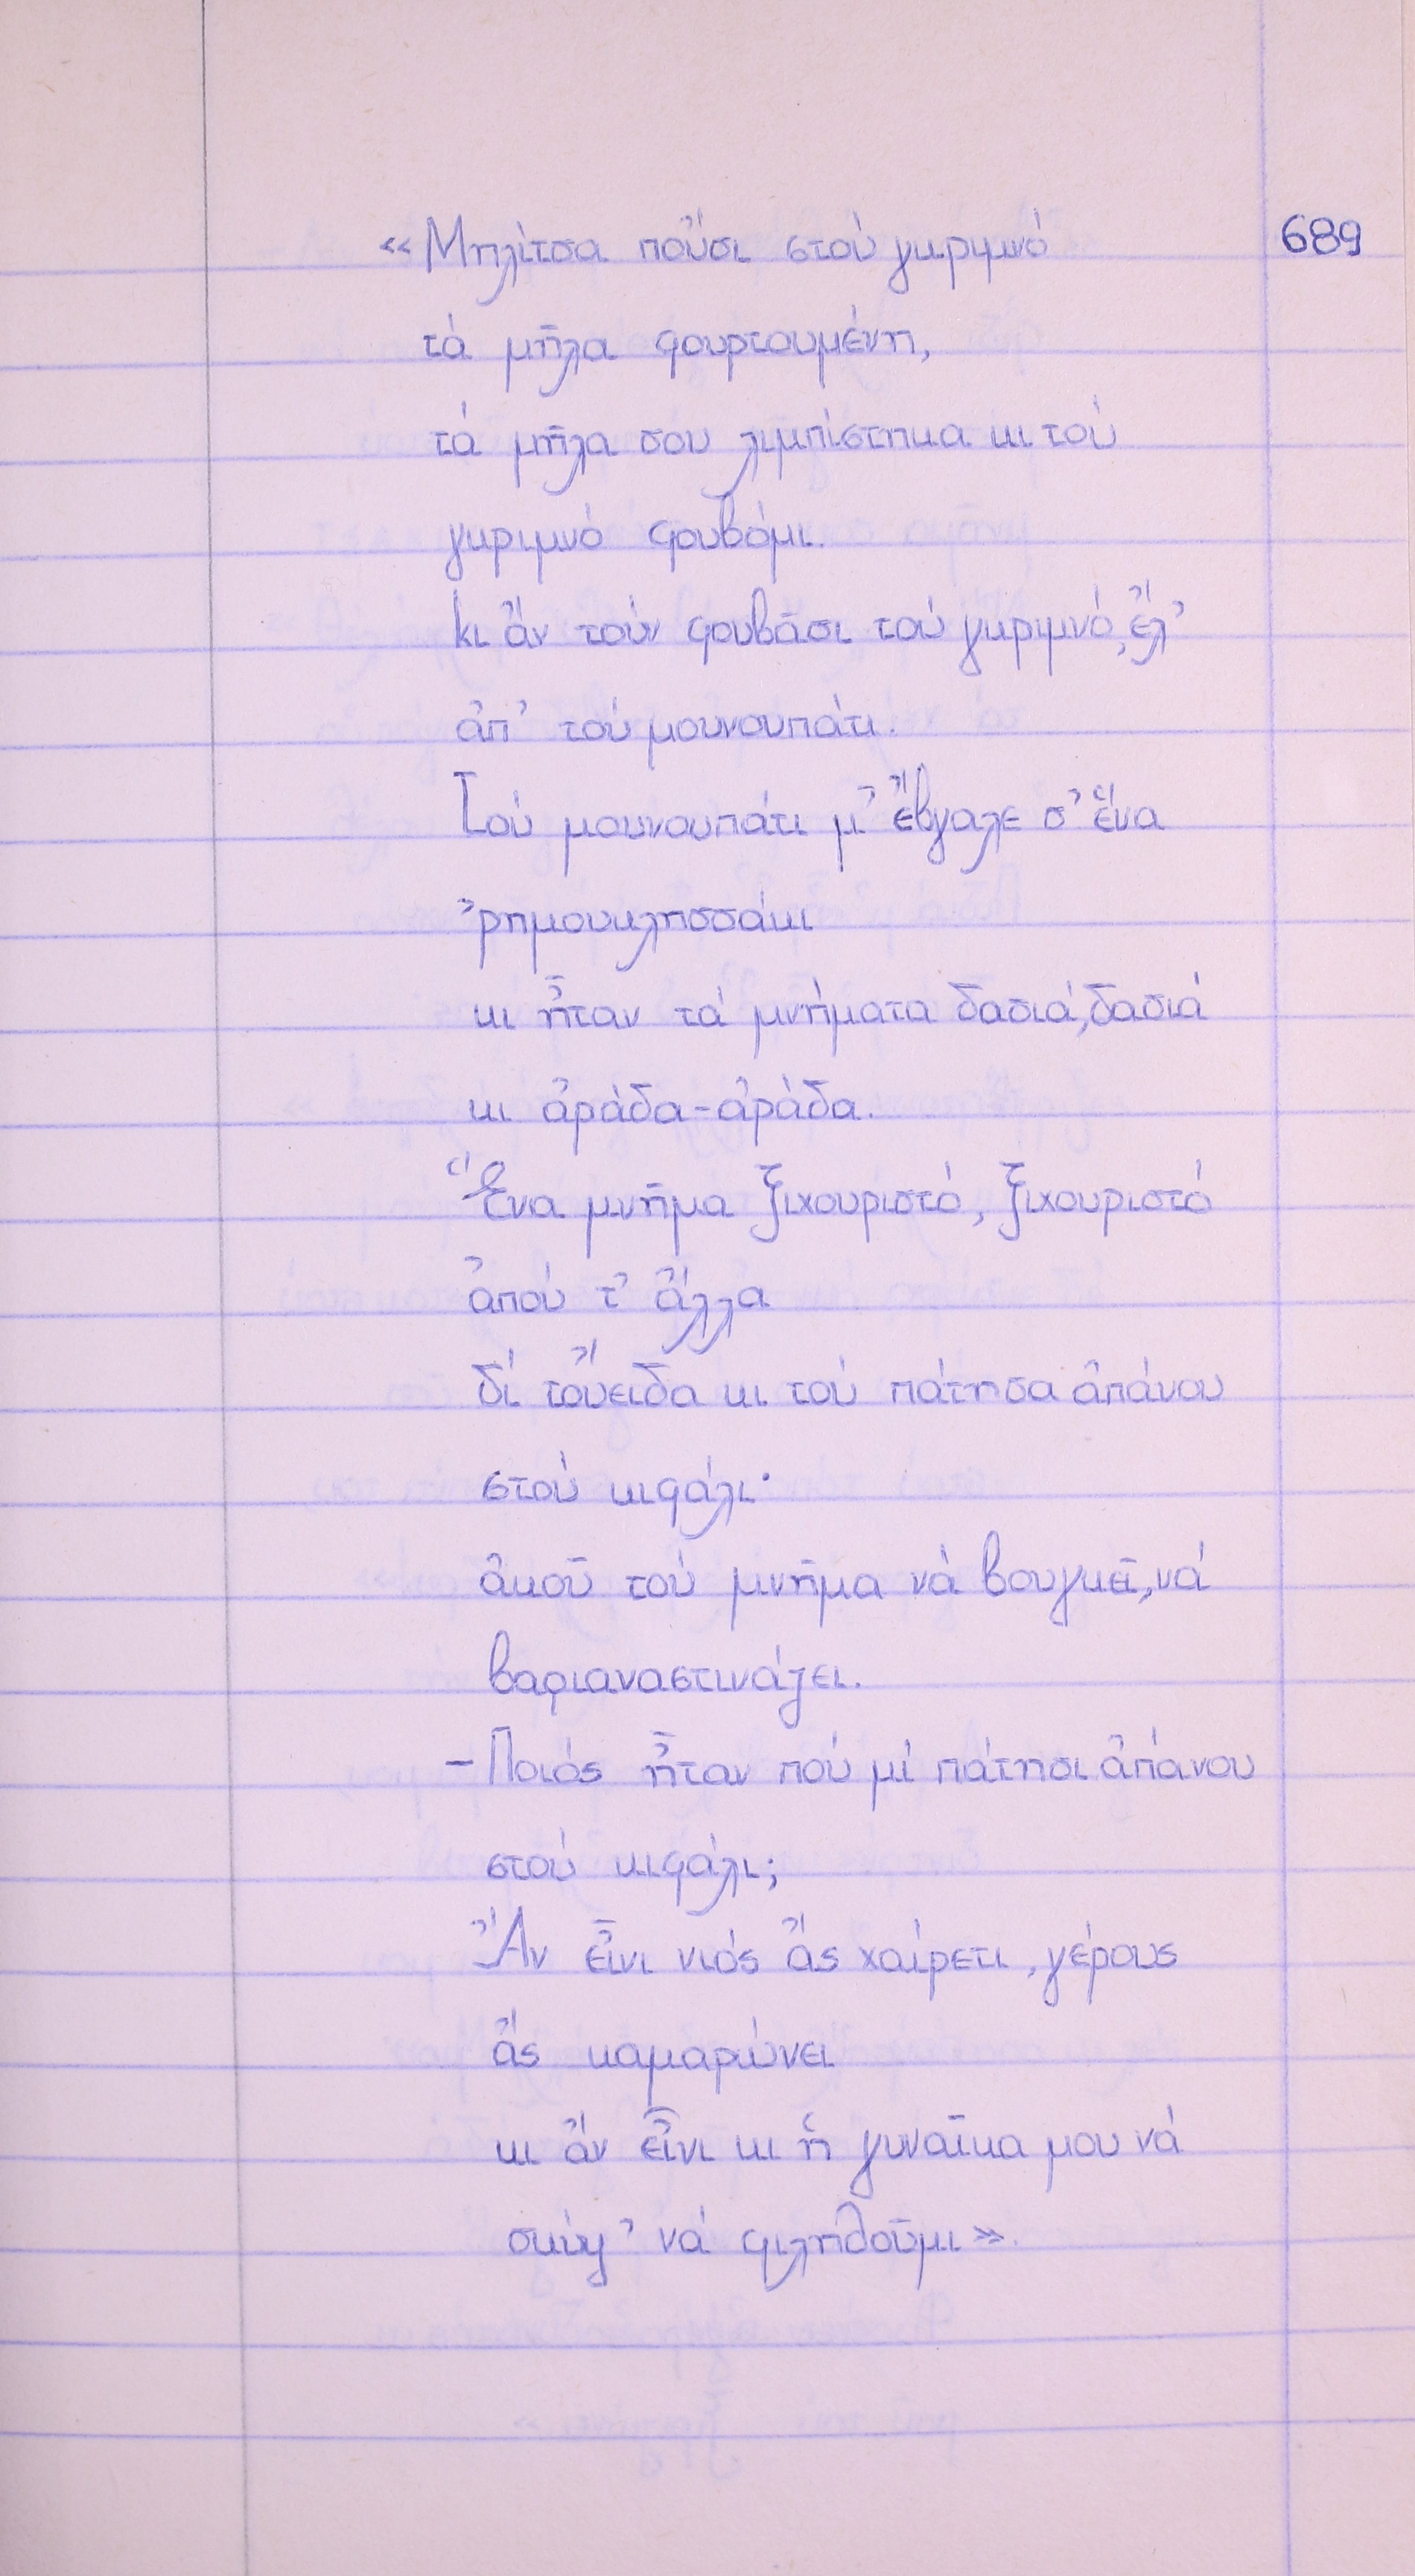 «Μηλίτσα ποὔσι στού γκριμνό 689
τά μῆλα φουρτουμένη,
τά μῆλα σου λιμπίστηκα κι τού
γκριμνό φουβᾶμι.
κι ἄν τούν φουβᾶσι τού γκριμνό, ἔλ'
ἀπ' τού μουνουπάτι.
Τού μουνουπάτι μ' ἔβγαλε σ' ἕνα
'ρημουκλησσάκι
κι ἦταν τά μνήματα δασιά, δασιά
κι ἀράδα-ἀράδα.
Ἕνα μνῆμα ξιχουριστό, ξιχουριστό
ἀπού τ' ἄλλα
δέ τοὔειδα κι τού πάτησα ἀπάνου
στού κιφάλι·
ἀκοῦ τού μνῆμα νά βουγκεῖ, νά
βαριαναστινάζει.
- Ποιός ἦταν πού μέ πάτησι ἀπάνου
στού κιφάλι;
Ἄν εἶνι νιός ἄς χαίρετι, γέρους
ἄς καμαρώνει
κι ἄν εἶνι κι ἡ γυναῖκα μου νά
σκύψ' νά φιληθοῦμι».